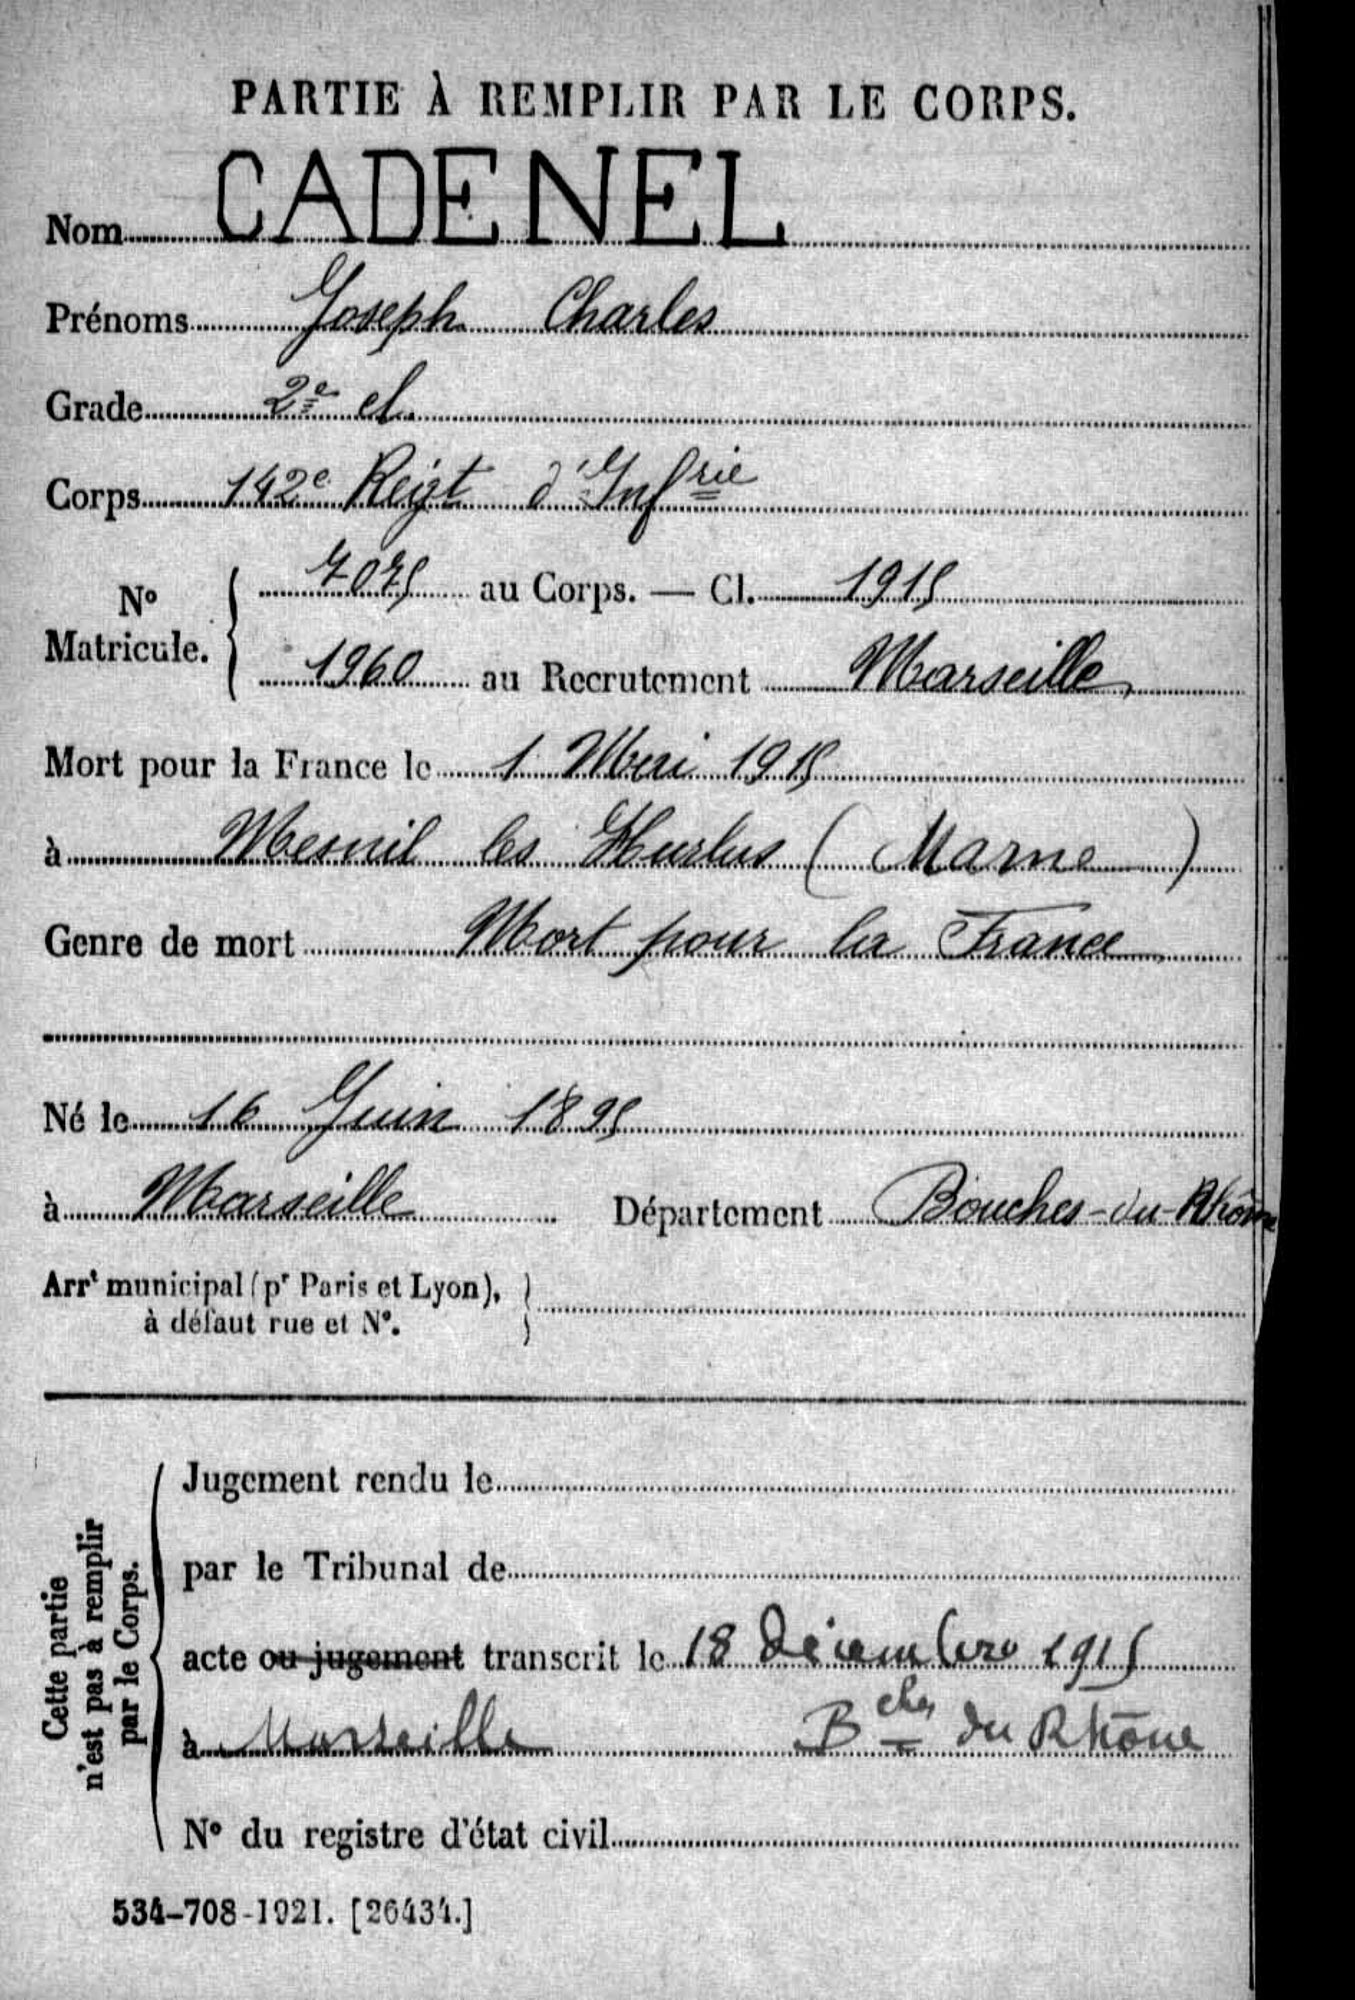 PARTIE À REMPLIR PAR LE CORPS.
Nom CADENEL
Prénoms Joseph Charles
Grade 2e cl.
Corps 142e Regt d'Infrie
N° Matricule. { 7075 au Corps. — Cl. 1915
1960 au Recrutement Marseille
Mort pour la France le 1 Mai 1915
à Mesnil les Hurlus (Marne)
Genre de mort Mort pour la France
Né le 16 Juin 1895
à Marseille Département Bouches-du-Rhône
Arrt municipal (pr Paris et Lyon), }
à défaut rue et N°.
Cette partie
n'est pas à remplir
par le Corps.
Jugement rendu le
par le Tribunal de
acte ou jugement transcrit le 18 décembre 1915
à Marseille Bches du Rhône
N° du registre d'état civil
534-708-1921. [26434.]